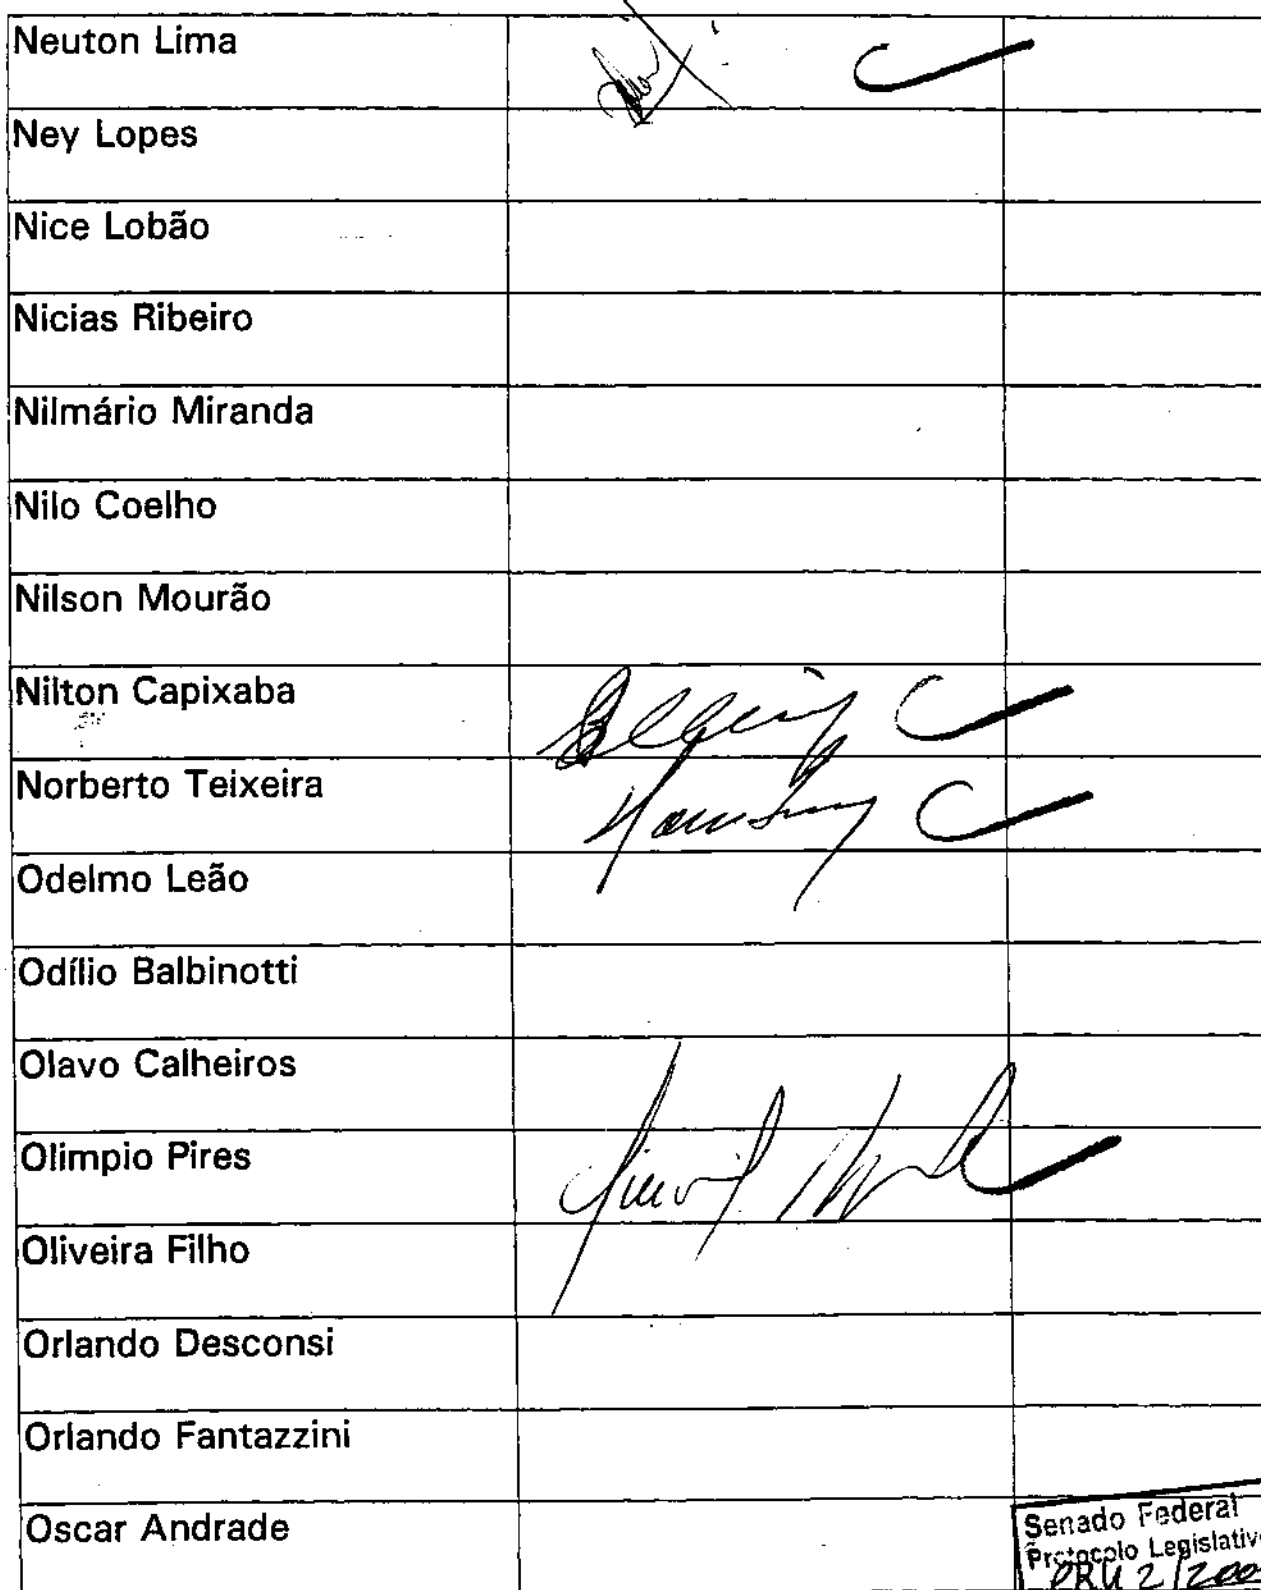 Neuton Lima
Ney Lopes
Nice Lobão
Nicias Ribeiro
Nilmário Miranda
Nilo Coelho
Nilson Mourão
Nilton Capixaba
Norberto Teixeira
Odelmo Leão
Odílio Balbinotti
Olavo Calheiros
Olimpio Pires
Oliveira Filho
Orlando Desconsi
Orlando Fantazzini
Oscar Andrade
Senado Federal
Protocolo Legislativ